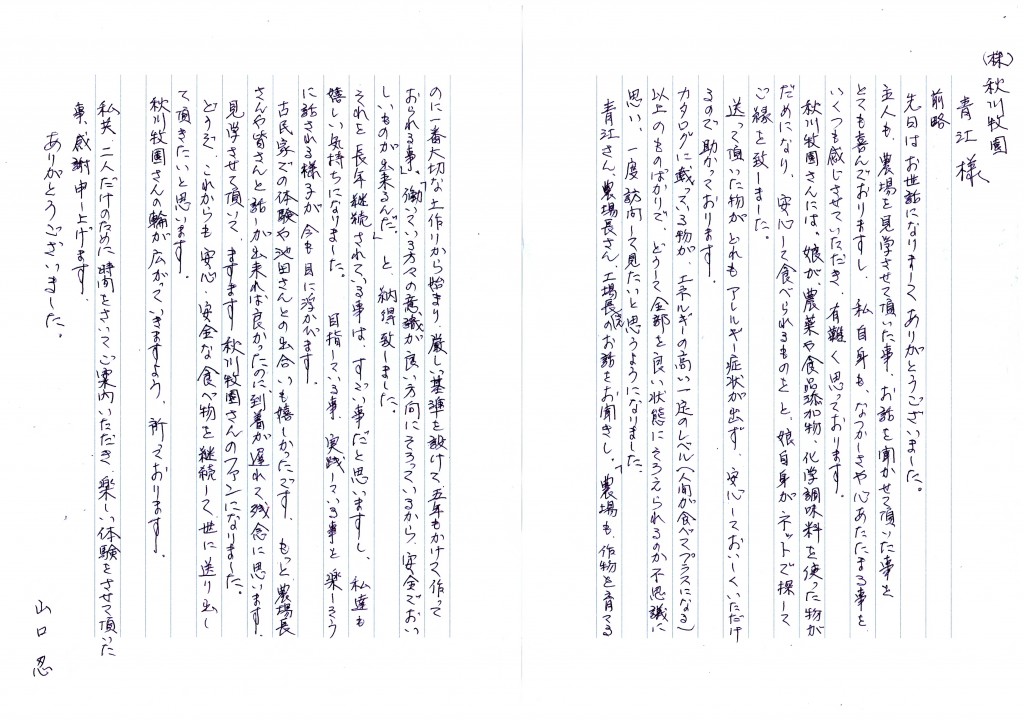 (株)秋川牧園
青江 様
前略
先日はお世話になりましてありがとうございました。
主人も、農場を見学させて頂いた事、お話を聞かせて頂いた事を
とても喜んでおりますし、私自身も、なつかしさや心あたたまる事を
いくつも感じさせていただき、有難く思っております。
秋川牧園さんには、娘が農薬や食品添加物、化学調味料を使った物が
だめになり、安心して食べられるものを と、娘自身がネットで探して
ご縁を致しました。
送って頂いた物が どれも アレルギー症状が出ず、安心しておいしくいただけ
るので助かっております。
カタログに載っている物が、エネルギーの高い一定のレベル(人間が食べてプラスになる)
以上のものばかりで、どうして全部を良い状態にそろえられるのか不思議に
思い、一度訪問して見たいと思うようになりました。
青江さん、農場長さん、工場長さんのお話をお聞きし、「農場も、作物を育てる
のに一番大切な「土作り」から始まり、厳しい基準を設けて五年もかけて作って
おられる事」、「働いている方々の意識が良い方向にそろっているから、安全でおい
しいものが出来るんだ。」と、納得致しました。
それを、長年継続されている事は、すごい事だと思いますし、私達も
嬉しい気持ちになりました。目指している事、実践している事を楽しそう
に話される様子が、今も目に浮かびます。
古民家での体験や池田さんとの出合いも嬉しかったです。もっと農場長
さんや皆さんと話が出来れば良かったのに、到着が遅れて、残念に思います。
見学させて頂いて、ますます秋川牧園さんのファンになりました。
どうぞ、これからも安心・安全な食べ物を継続して、世に送り出し
て頂きたいと思います。
秋川牧園さんの輪が広がっていきますよう、祈っております。
私共、二人だけのために時間をさいてご案内いただき、楽しい体験をさせて頂いた
事、感謝申し上げます。
ありがとうございました。
山口 忍